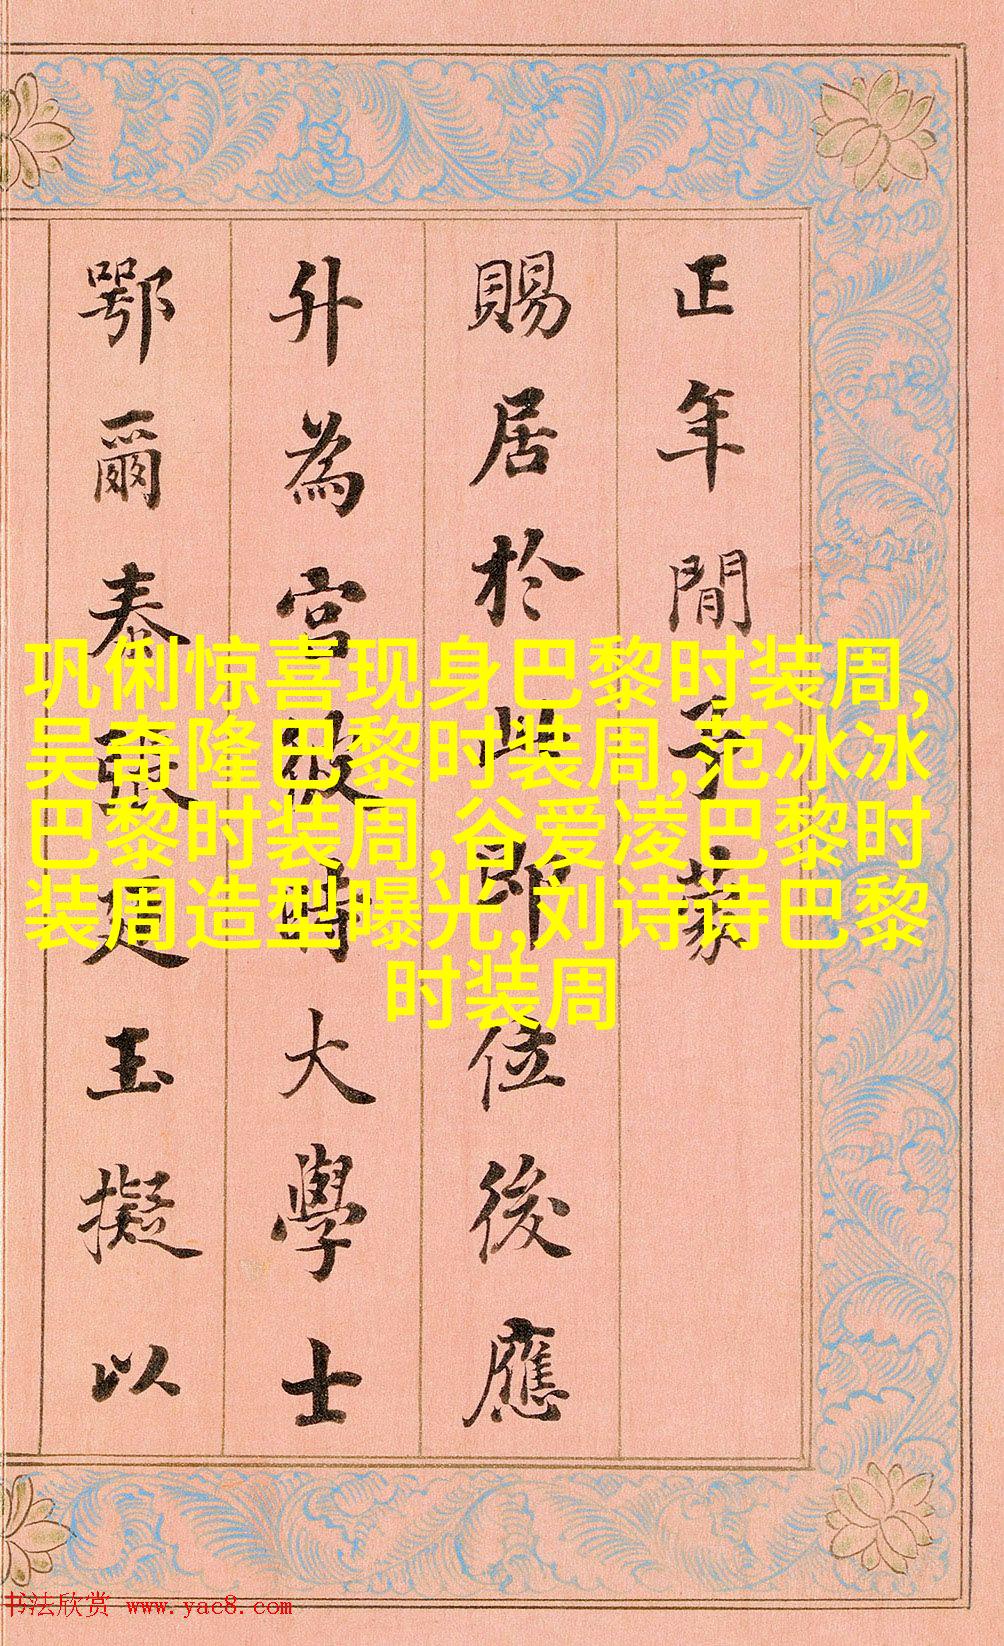 正年間予蒙
賜居於此即位後應
升為宮彼時大學士
鄂爾泰張廷玉擬以
巩俐惊喜现身巴黎时装周,
吴奇隆巴黎时装周,范冰冰
巴黎时装周,谷爱凌巴黎时
装周造型曝光,刘诗诗巴黎
时装周
书法欣赏 www.yac8.com